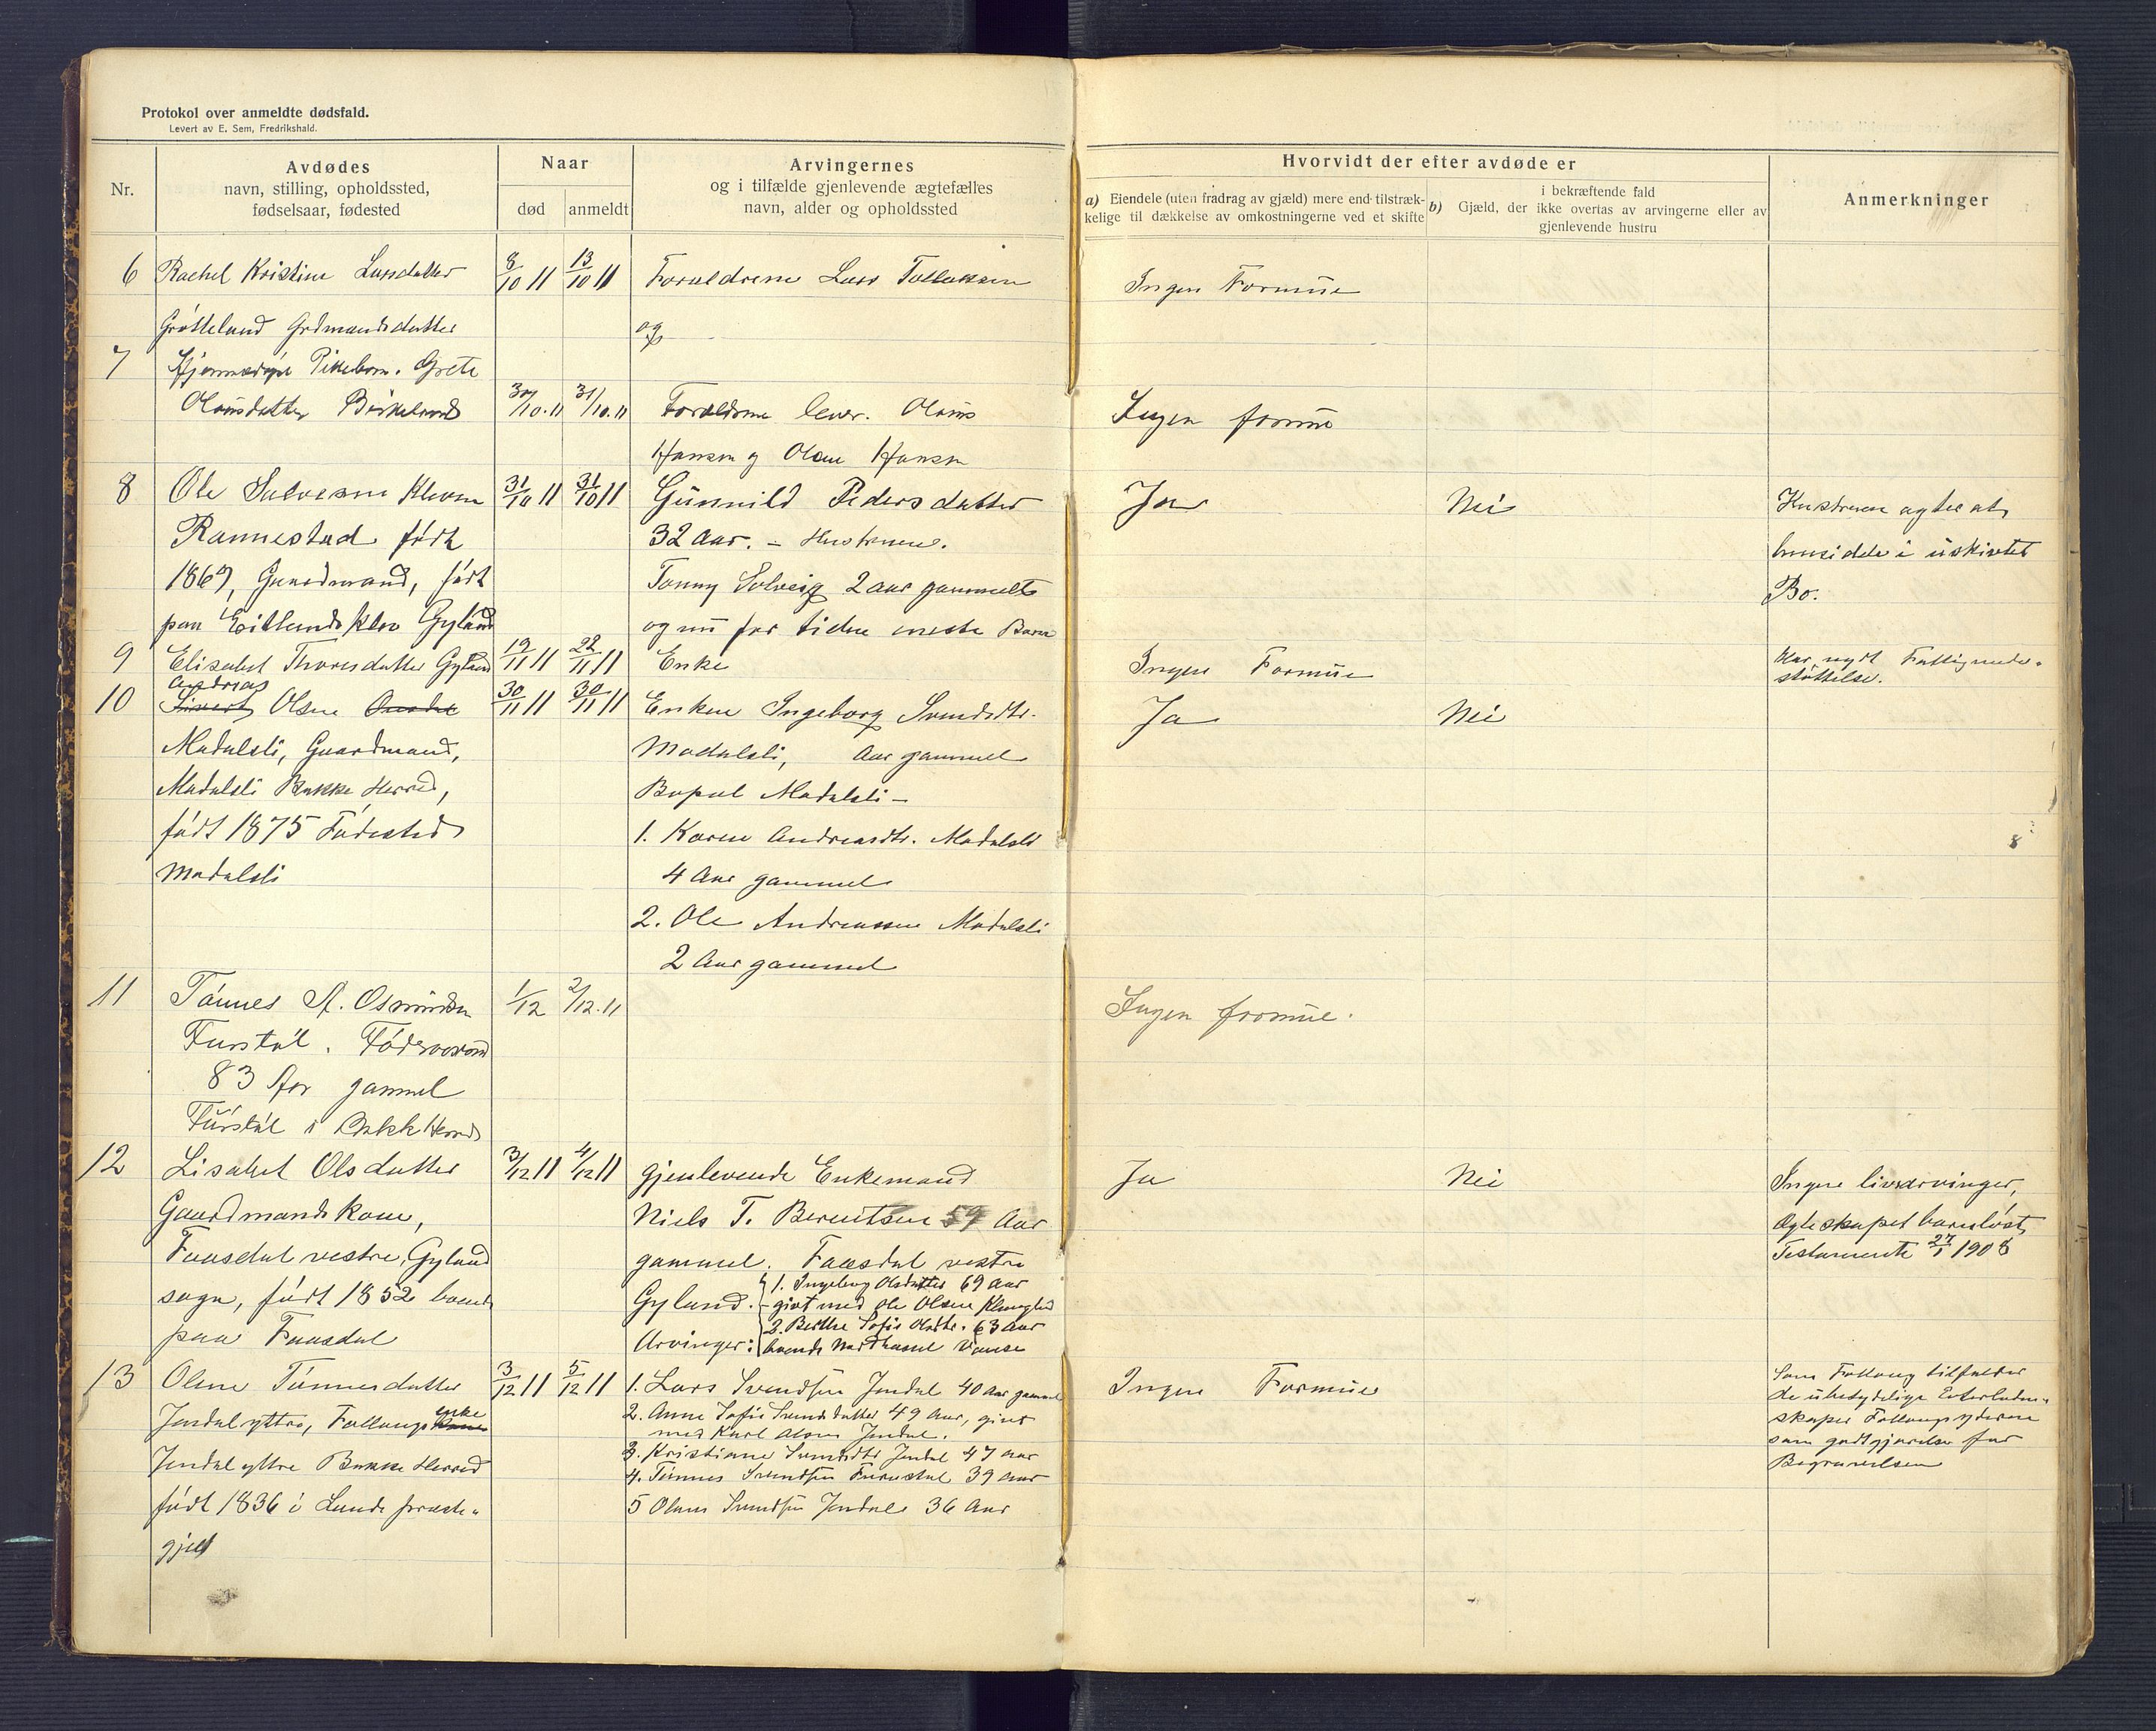 Protokol over anmeldte dødsfald.
Levert av E. Sem, Fredrikshald.
Nr.
Avdødes
navn, stilling, opholdssted,
fødselsaar, fødested
Naar
død
anmeldt
Arvingernes
og i tilfælde gjenlevende ægtefælles
navn, alder og opholdssted
Hvorvidt der efter avdøde er
a) Eiendele (uten fradrag av gjæld) mere end tilstræk-
kelige til dækkelse av omkostningerne ved et skifte
i bekræftende fald
b) Gjæld, der ikke overtas av arvingerne eller av
gjenlevende hustru
Anmerkninger
6 Rachel Kristine Larsdatter 8/10 11 13/10 11 Forældrene Lars Tollaksen Ingen Formue
Grøtteland Grdmandsdatter og
7 Hjemmedøpt Pikebarn. Grete
Olausdatter Birkeland 30/10.11 31/10.11 Forældrene lever. Olaus Ingen formue
Hansen og Olene Hansen
8 Ole Salvesen Kleven 31/10 11 31/10 11 Gunnild Pedersdatter Ja Nei Hustruen agter at
Rannestad født 32 Aar. – Hustruen. hensidde i uskiftet
1867, Gaardmand, født Tonny Solveig 2 aar gammelt Bo.
paa Eitlandsklev Gyland og nu for tiden eneste Barn
9 Elisabet Thoresdatter Gyland 19/11 11 22/11 11 Enke Ingen Formue Har nydt Fattigunder-
støttelse.
Andreas
10 Sivert Olsen 30/11 11 30/11 11 Enken Ingeborg Svendsdtr. Ja Nei
Madalsli, Gaardmand, Madalsli, Aar gammel
Madalsli Bakke Herred, Bopæl Madalsli –
født 1875 Fødested 1. Karen Andreasdtr. Madalsli
Madalsli 4 Aar gammel
2. Ole Andreassen Madalsli
2 Aar gammel
11 Tønnes A. Osmundsen 1/12 2/12.11 Ingen formue.
Furstøl. Føderaadsmand
83 Aar gammel
Furstøl i Bakke Herred
12 Lisabet Olsdatter 3/12 11 4/12 11 gjenlevende Enkemand Ja Nei Ingen livsarvinger,
Gaardmandskone, Niels T. Berentsen 59 Aar Ægteskapet barnløst,
Faasdal vestre, Gyland gammel. Faasdal vestre Testamente 27/1 1908
sogn, født 1852 boende Gyland. 1. Ingeborg Olsdatter 69 aar
- givt med Ole Olsen
paa Faasdal Arvinger: 2. Berthe Sofie Olsdtr. 63 aar
boende Nordhassel Vanse
13 Olene Tønnesdatter 3/12 11 5/12 11 1. Lars Svendsen Jerdal 40 Aar gammel Ingen Formue Som Føllaug tilfalder
Jerdal yttre, Føllaugs enke Kone 2. Anne Sofie Svendsdatter 49 Aar, givt de ubetydelige Efterladen-
med Karl Jerdal. skaper Føllaugsyderne
Jerdal yttre Bakke Herred 3. Kristiane Svendsdtr Jerdal 47 aar som godtgjørelse for
4. Tønnes Svendsen Furustøl 39 aar Begravelsen
født 1836 i Lunde præste- 5 Olaus Svendsen Jerdal 36 Aar
gjeld